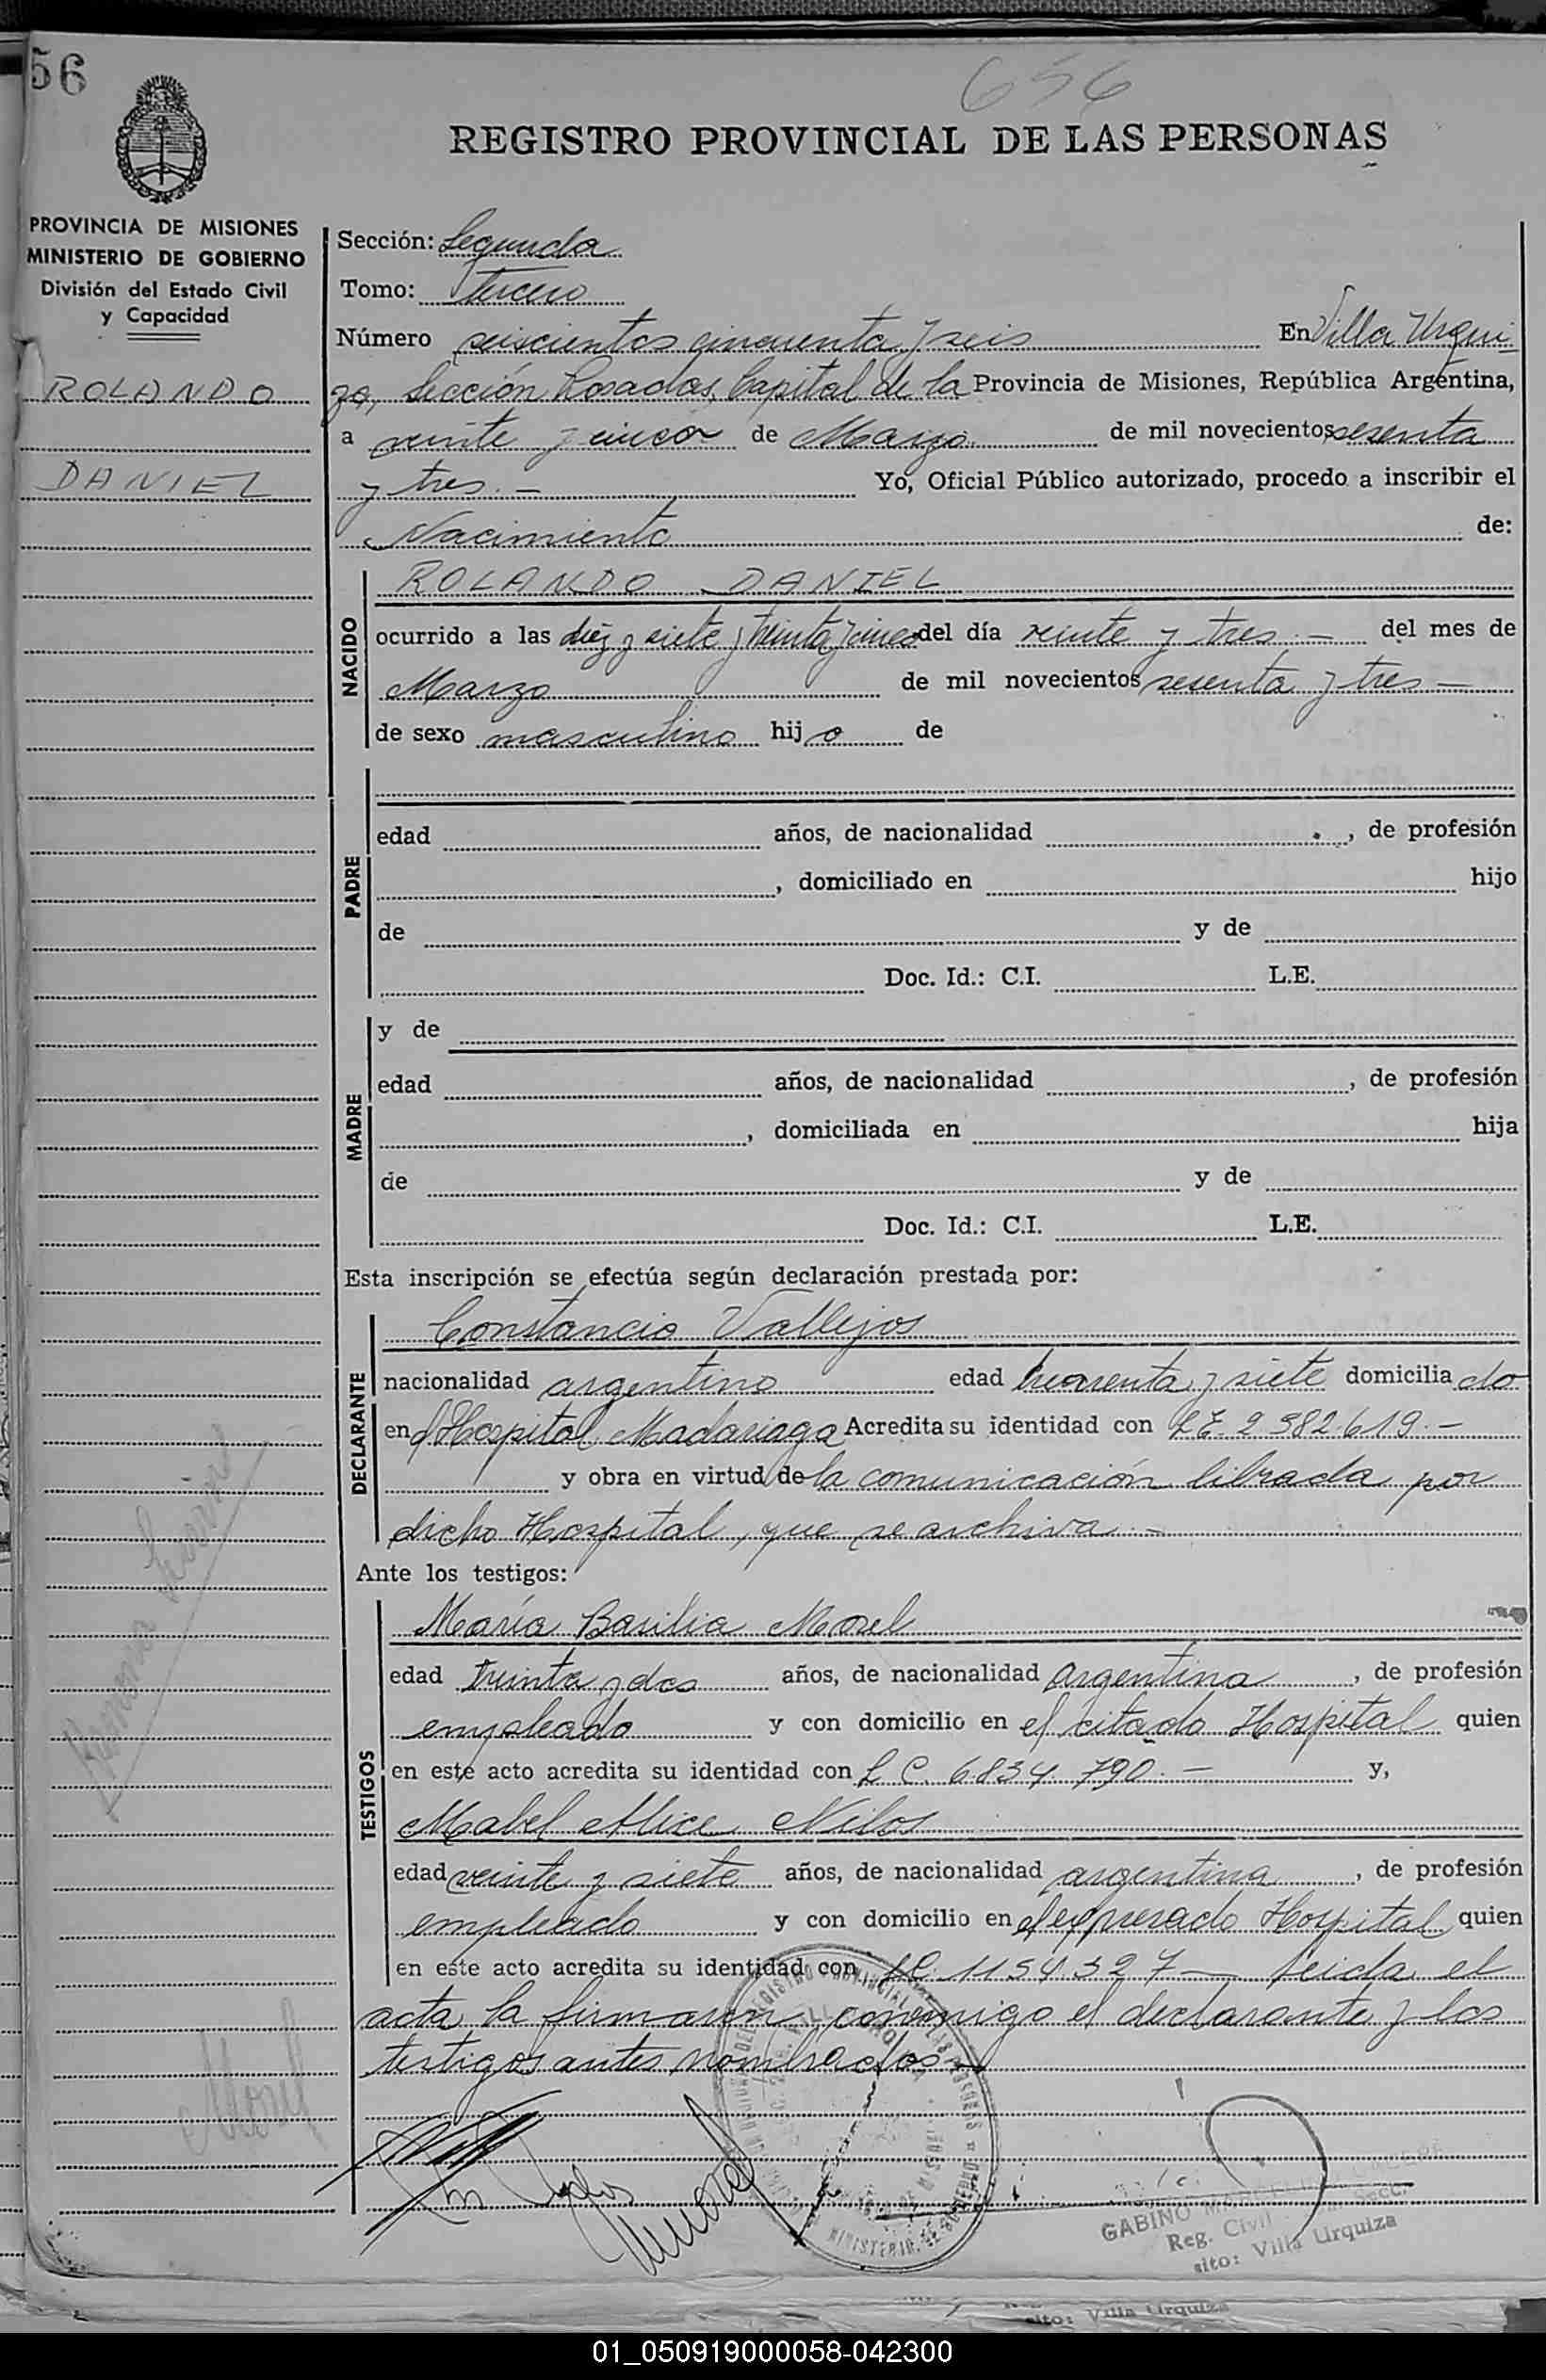 56
656
REGISTRO PROVINCIAL DE LAS PERSONAS
PROVINCIA DE MISIONES
MINISTERIO DE GOBIERNO
División del Estado Civil
y Capacidad
ROLANDO
DANIEL
Sección: Segunda
Tomo: Tercero
Número seiscientos cincuenta y seis En Villa Urqui-
za, Sección Posadas, Capital de la Provincia de Misiones, República Argentina,
a veinte y cinco de Marzo de mil novecientos sesenta
y tres.- Yo, Oficial Público autorizado, procedo a inscribir el
Nacimiento de:
NACIDO
ROLANDO DANIEL
ocurrido a las diez y siete y treinta y cinco del día veinte y tres.- del mes de
Marzo de mil novecientos sesenta y tres-
de sexo masculino hijo de
PADRE
edad años, de nacionalidad , de profesión
, domiciliado en hijo
de y de
Doc. Id.: C.I. L.E.
MADRE
y de
edad años, de nacionalidad , de profesión
, domiciliada en hija
de y de
Doc. Id.: C.I. L.E.
Esta inscripción se efectúa según declaración prestada por:
DECLARANTE
Constancio Vallejos
nacionalidad argentino edad cuarenta y siete domiciliado
en Hospital Madariaga Acredita su identidad con L.E. 2 582.619.-
y obra en virtud de la comunicación librada por
dicho Hospital, que se archiva.-
Ante los testigos:
TESTIGOS
María Basilia Morel
edad treinta y dos años, de nacionalidad argentina , de profesión
empleada y con domicilio en el citado Hospital quien
en este acto acredita su identidad con L C. 6834.790.- y,
Mabel Alice Nilos
edad veinte y siete años, de nacionalidad argentina , de profesión
empleada y con domicilio en el expresado Hospital quien
en este acto acredita su identidad con LC. 1154.327- Leida el
acta la firmaron conmigo el declarante y los
testigos antes nombrados-
Morel
GABINO
Reg. Civil Secc.
sito: Villa Urquiza
sito: Villa Urquiza
01_050919000058-042300